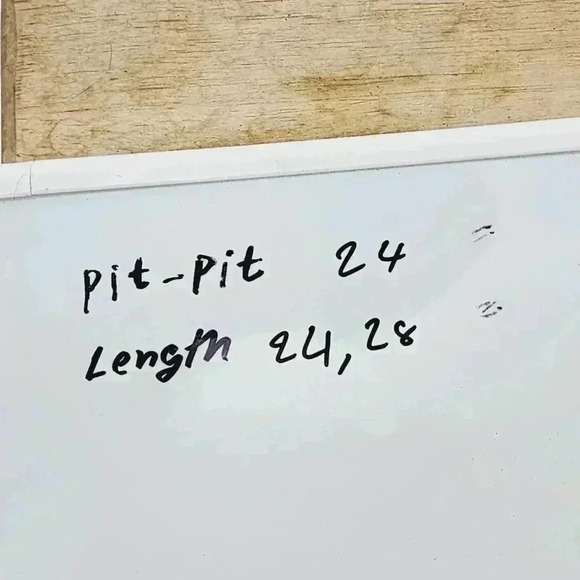 Pit-Pit 24 "
Length 24, 28 "